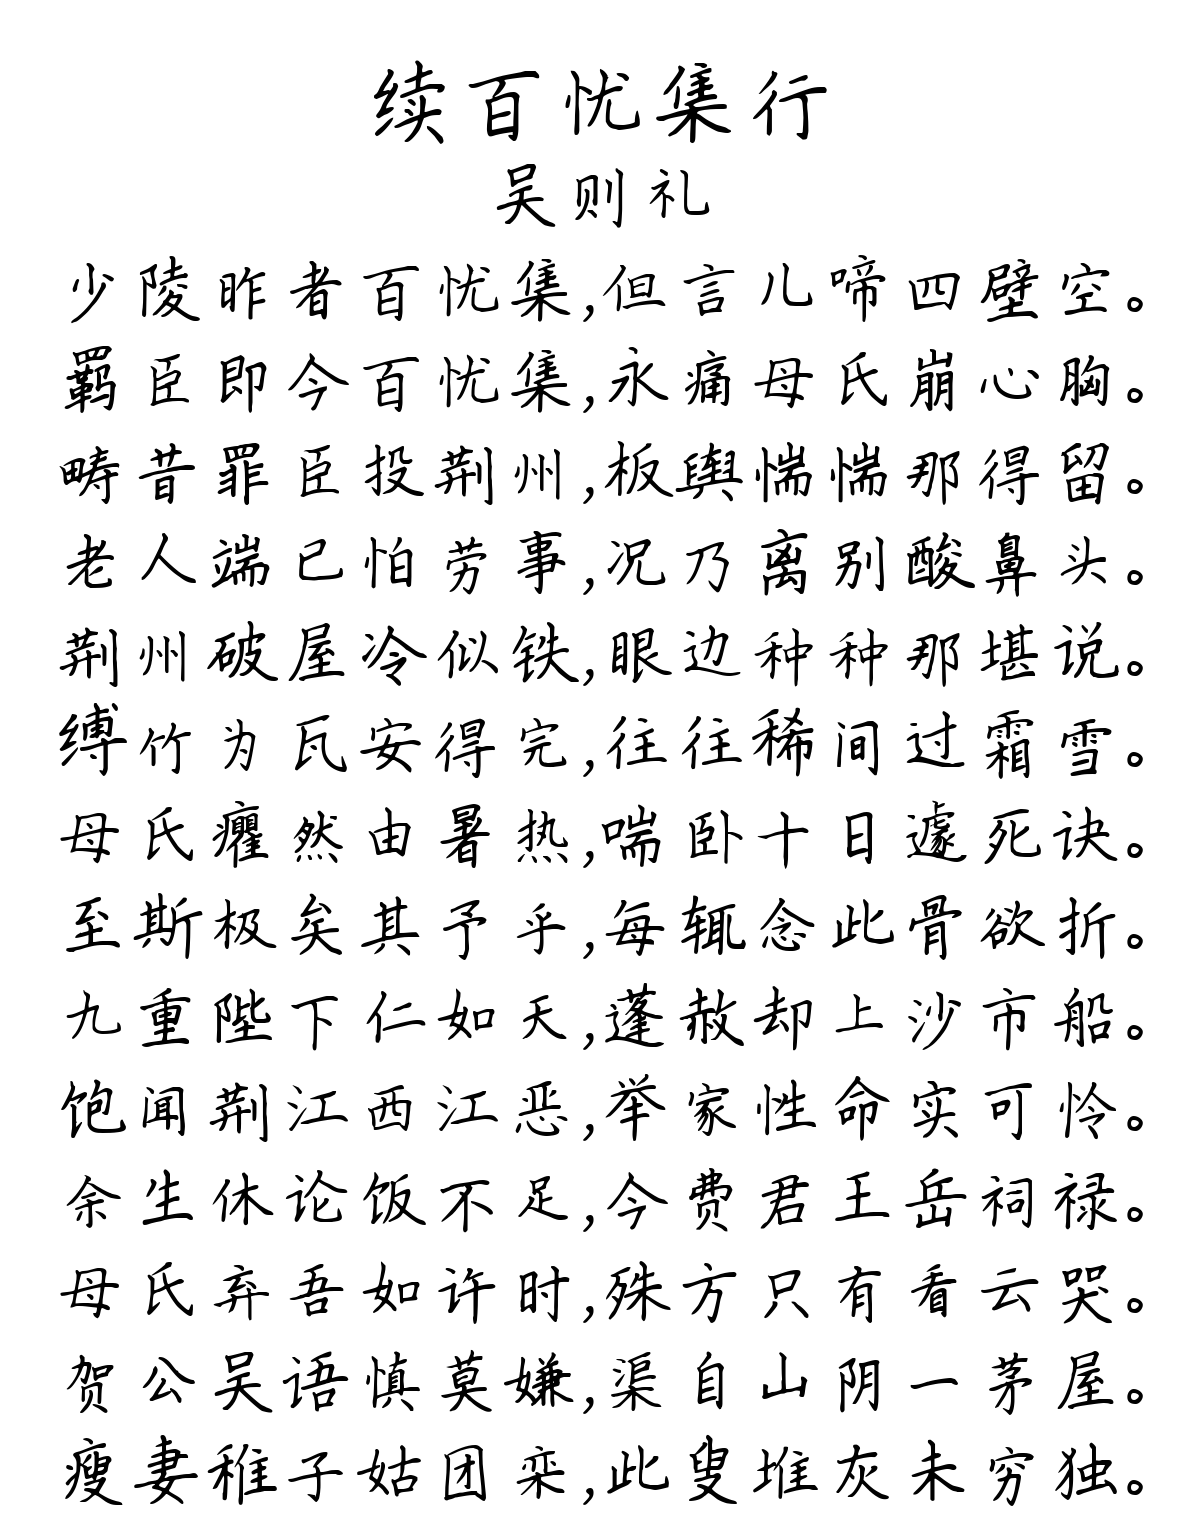 续百忧集行
吴则礼
少陵昨者百忧集,但言儿啼四壁空。
羁臣即今百忧集,永痛母氏崩心胸。
畴昔罪臣投荆州,板舆惴惴那得留。
老人端已怕劳事,况乃离别酸鼻头。
荆州破屋冷似铁,眼边种种那堪说。
缚竹为瓦安得完,往往稀间过霜雪。
母氏癯然由暑热,喘卧十日遽死诀。
至斯极矣其予乎,每辄念此骨欲折。
九重陛下仁如天,蓬赦却上沙市船。
饱闻荆江西江恶,举家性命实可怜。
余生休论饭不足,今费君王岳祠禄。
母氏弃吾如许时,殊方只有看云哭。
贺公吴语慎莫嫌,渠自山阴一茅屋。
瘦妻稚子姑团栾,此叟堆灰未穷独。